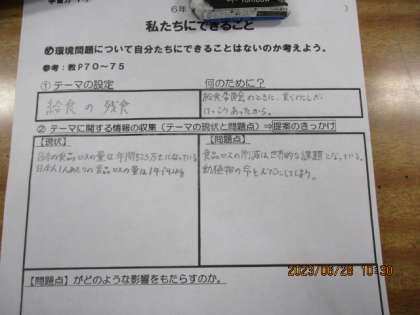 6年
私たちにできること
め環境問題について自分たちにできることはないのか考えよう。
参考：教P70～75
①テーマの設定
何のために？
給食の残食
給食委員会のときに、食べのこしが
けっこうあったから。
②テーマに関する情報の収集（テーマの現状と問題点）⇒提案のきっかけ
【現状】
【問題点】
日本の食品ロスの量は年間523万tになっている
日本人1人あたりの食品ロスの量は1年で42kg
食品ロスの削減は世界的な課題となっている。
動植物の命を
【問題点】がどのような影響をもたらすのか。
2023/06/28 10:30